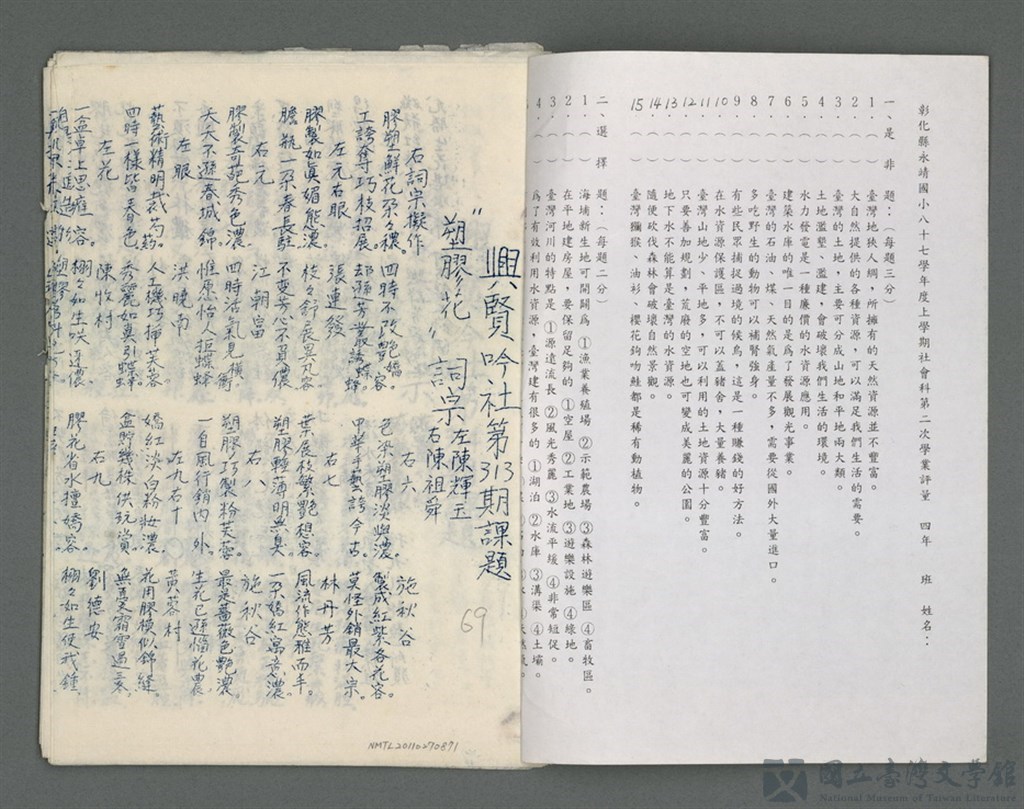 彰化縣永靖國小八十七學年度上學期社會科第二次學業評量 四年 班 姓名：
一、是 非 題：（每題三分）
1．（ ）臺灣地狹人綢，所擁有的天然資源並不豐富。
2．（ ）大自然提供的各種資源，可以滿足我們生活的需要。
3．（ ）臺灣的土地，主要可分成山地和平地兩大類。
4．（ ）土地濫墾、濫建，會破壞我們生活的環境。
5．（ ）水力發電是一種廉價的水資源應用。
6．（ ）建築水庫的唯一目的是為了發展觀光事業。
7．（ ）臺灣的石油、煤、天然氣產量不多，需要從國外大量進口。
8．（ ）多吃野生的動物可以補腎強身。
9．（ ）有些民眾捕捉過境的候鳥，這是一種賺錢的好方法。
10．（ ）在水資源保護區，不可以蓋豬舍，大量養豬。
11．（ ）臺灣山地少、平地多，可以利用的土地資源十分豐富。
12．（ ）只要善加規劃，荒廢的空地也可變成美麗的公園。
13．（ ）地下水不能算是臺灣的水資源。
14．（ ）隨便砍伐森林會破壞自然景觀。
15．（ ）臺灣獼猴、油杉、櫻花鉤吻鮭都是稀有動植物。
二、選 擇 題：（每題二分）
1．（ ）海埔新生地可開闢為 ①漁業養殖場 ②示範農場 ③森林遊樂區 ④畜牧區。
2．（ ）在平地建房屋，要保留足夠的 ①空屋 ②工業地 ③遊樂設施 ④綠地。
3．（ ）臺灣河川的特點是 ①源遠流長 ②風光秀麗 ③水流平緩 ④非常短促。
4．（ ）為了有效利用水資源，臺灣建有很多的 ①湖泊 ②水庫 ③溝渠 ④土壩。
興賢吟社第313期課題
"塑膠花" 詞宗 左陳輝玉
右陳祖舜
69
右詞宗擬作
膠塑鮮花朶々穠。四時不改艷嬌容。
工誇奪巧枝招展。却遜芳叢誘蝶蜂。
左元右眼 張連發
膠製如真媚態濃。枝々舒展異凡容
膽瓶一朶春長駐 不要芳心不買儂
右元 江朝富
膠製奇葩秀色濃 四時活氣見橫衡
夭夭不遜春城錦 惟原怡人拒蝶蜂
左眼 洪曉南
藝術精明裁芍药 人工機巧押芙蓉
四時一樣皆春色 秀麗如真引蝶蜂
左花 陳收村
一盒卓上思雍容。栩々如生咲逞儂
右六 施秋谷
色染塑膠淡與濃。製成紅紫各花容。
中華手藝誇今古 莫怪外銷最大宗
右七 林丹芳
葉展枝繁艷想容。風流作態雅而丰。
塑膠輕薄明無臭。一朶嬌紅寓意濃。
右八 施秋谷
塑膠巧製粉芙蓉。最是薔薇色艷濃
一自風行銷內外。生花已遜惱花農。
左九右十 黃蓉村
嬌紅淡白粉妝濃。花用膠模似錦縫。
盒貯幾株供玩賞。無憂霜雪過三冬。
右九 劉德安
膠花省水擅嬌容。栩々如生使我鍾。
NMTL20110270871
國立臺灣文學館
National Museum of Taiwan Literature